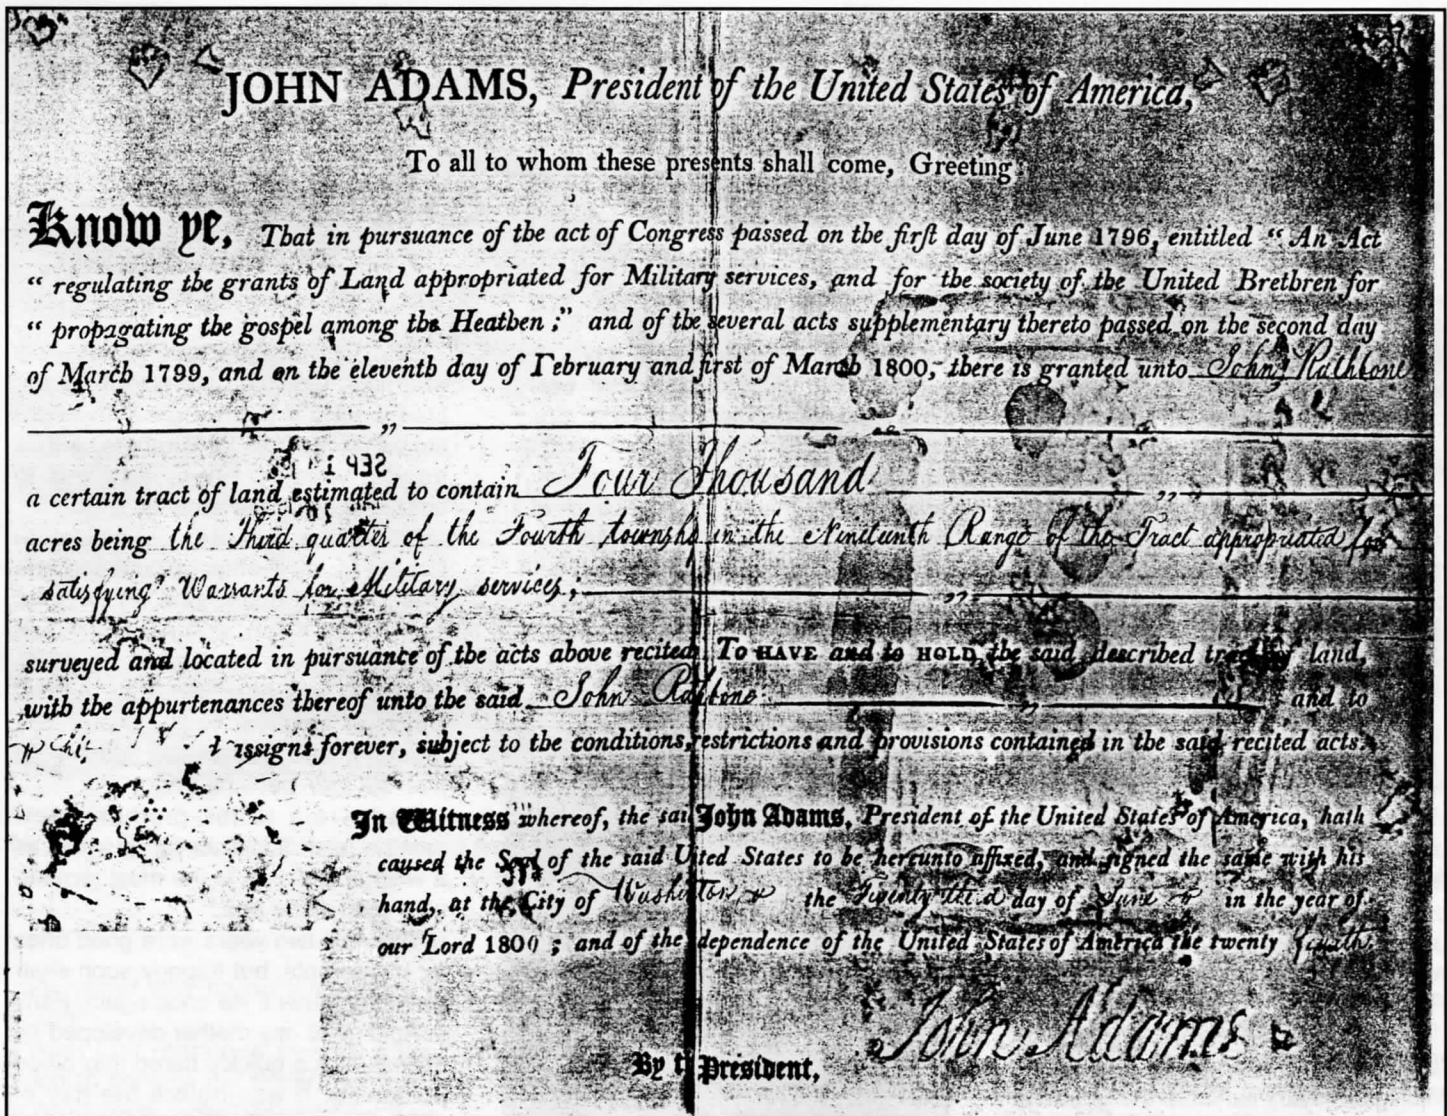 JOHN ADAMS, President of the United States of America,
To all to whom these presents shall come, Greeting:
Know ye, That in pursuance of the act of Congress passed on the first day of June 1796, entitled “An Act
“ regulating the grants of Land appropriated for Military services, and for the society of the United Brethren for
“ propagating the gospel among the Heathen ;” and of the several acts supplementary thereto passed on the second day
of March 1799, and on the eleventh day of February and first of March 1800, there is granted unto John Rathbone
SEP 1
a certain tract of land estimated to contain Four Thousand
acres being the Third quarter of the Fourth township in the Nineteenth Range of the Tract appropriated for
satisfying Warrants for Military services;
surveyed and located in pursuance of the acts above recited To HAVE and to HOLD the said described tract of land,
with the appurtenances thereof unto the said John Rathbone and to
assigns forever, subject to the conditions, restrictions and provisions contained in the said recited acts.
In Witness whereof, the said John Adams, President of the United States of America, hath
caused the Seal of the said United States to be hereunto affixed, and signed the same with his
hand, at the City of Washington the Twenty third day of June in the year of
our Lord 1800 ; and of the dependence of the United States of America the twenty fourth
John Adams
By the President,